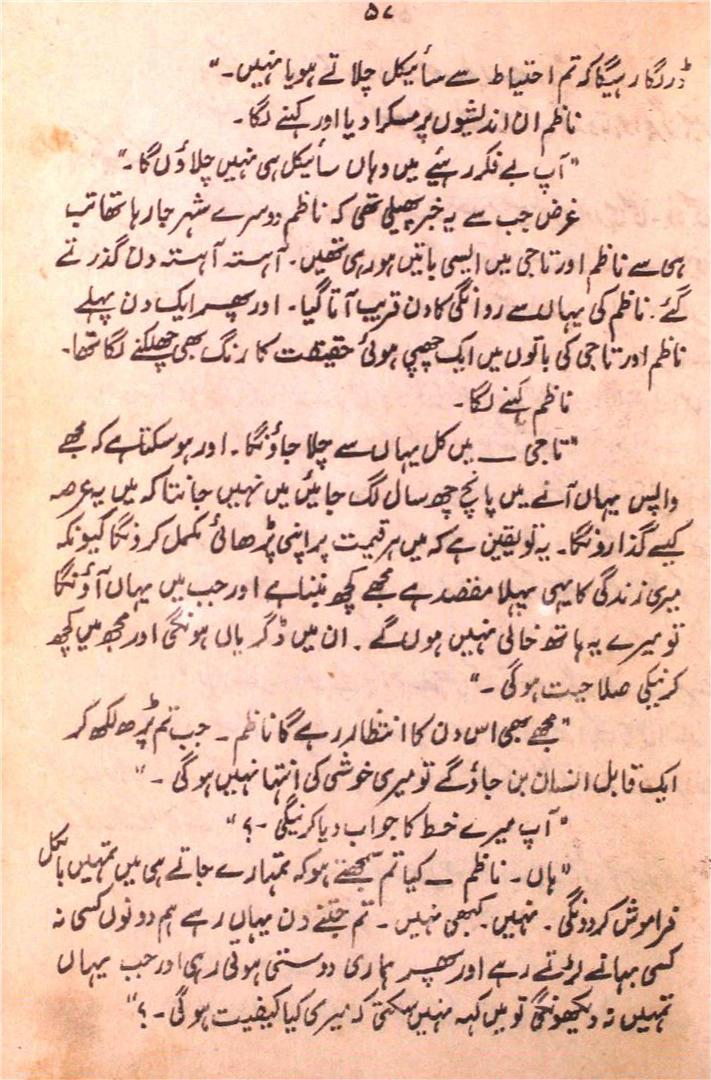 ۵۷
ڈر لگا رہیگا کہ تم احتیاط سے سائیکل چلاتے ہو یا نہیں۔"
ناظم ان اندیشوں پر مسکرا دیا اور کہنے لگا۔
"آپ بے فکر رہئیے میں وہاں سائیکل ہی نہیں چلاؤں گا۔"
غرض جب سے یہ خبر پھیلی تھی کہ ناظم دوسرے شہر جا رہا تھا تب
ہی سے ناظم اور تاجی میں ایسی باتیں ہو رہی تھیں۔ آہستہ آہستہ دن گذرتے
گئے۔ ناظم کی یہاں سے روانگی کا دن قریب آتا گیا۔ اور پھر ایک دن پہلے
ناظم اور تاجی کی باتوں میں ایک چھپی ہوئی حقیقت کا رنگ بھی چھلکنے لگا تھا۔
ناظم کہنے لگا۔
"تاجی ــ میں کل یہاں سے چلا جاؤنگا۔ اور ہو سکتا ہے کہ مجھے
واپس یہاں آنے میں پانچ چھ سال لگ جائیں میں نہیں جانتا کہ میں یہ عرصہ
کیسے گذارونگا۔ یہ تو یقین ہے کہ میں ہر قیمت پر اپنی پڑھائی مکمل کرونگا کیونکہ
میری زندگی کا یہی پہلا مقصد ہے مجھے کچھ بننا ہے اور جب میں یہاں آؤنگا
تو میرے یہ ہاتھ خالی نہیں ہوں گے۔ ان میں ڈگریاں ہونگی اور مجھ میں کچھ
کرنیکی صلاحیت ہوگی۔"
"مجھے بھی اس دن کا انتظار رہے گا ناظم۔ جب تم پڑھ لکھ کر
ایک قابل انسان بن جاؤ گے تو میری خوشی کی انتہا نہیں ہوگی۔"
"آپ میرے خط کا جواب دیا کرینگی۔؟"
"ہاں۔ ناظم ــ کیا تم سمجھتے ہو کہ تمہارے جاتے ہی میں تمہیں بالکل
فراموش کردونگی۔ نہیں۔ کبھی نہیں۔ تم جتنے دن یہاں رہے ہم دونوں کسی نہ
کسی بہانے لڑتے رہے اور پھر ہماری دوستی ہوتی رہی اور جب یہاں
تمہیں نہ دیکھونگی تو میں کہہ نہیں سکتی کہ میری کیا کیفیت ہوگی۔؟"